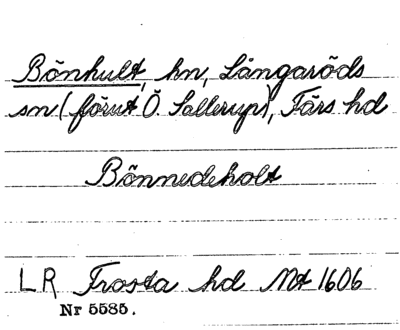 Bönhult, hn, Långaröds
sn (förut Ö. Sallerup), Färs hd
Bönnedeholt
LR Frosta hd Mt 1606
Nr 5585.